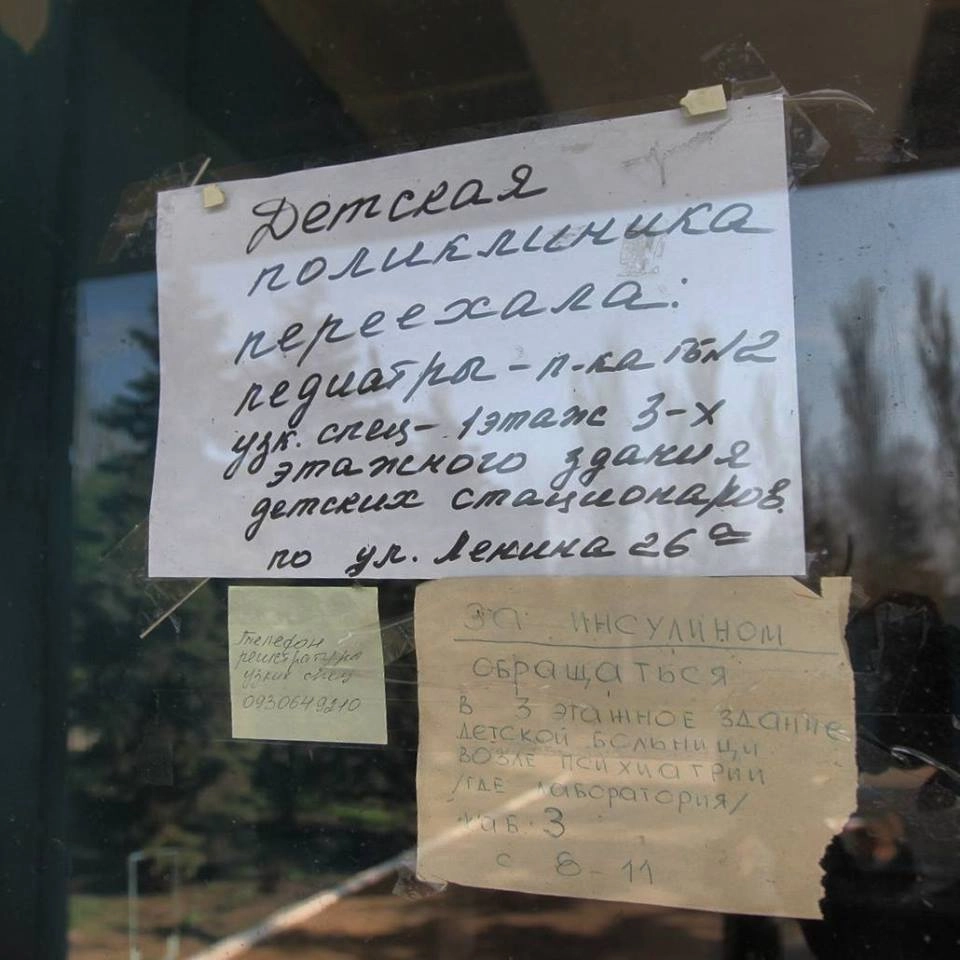 Детская
поликлиника
переехала:
педиатры - п-ка ГБ№2
узк. спец - 1 этаж 3-х
этажного здания
детских стационаров
по ул. Ленина 26а
Телефон
регистратура
узких спец
0930649210
ЗА ИНСУЛИНОМ
ОБРАЩАТЬСЯ
В 3 ЭТАЖНОЕ ЗДАНИЕ
ДЕТСКОЙ БОЛЬНИЦЫ
ВОЗЛЕ ПСИХИАТРИИ
/ГДЕ ЛАБОРАТОРИЯ/
КАБ. 3
С 8-11